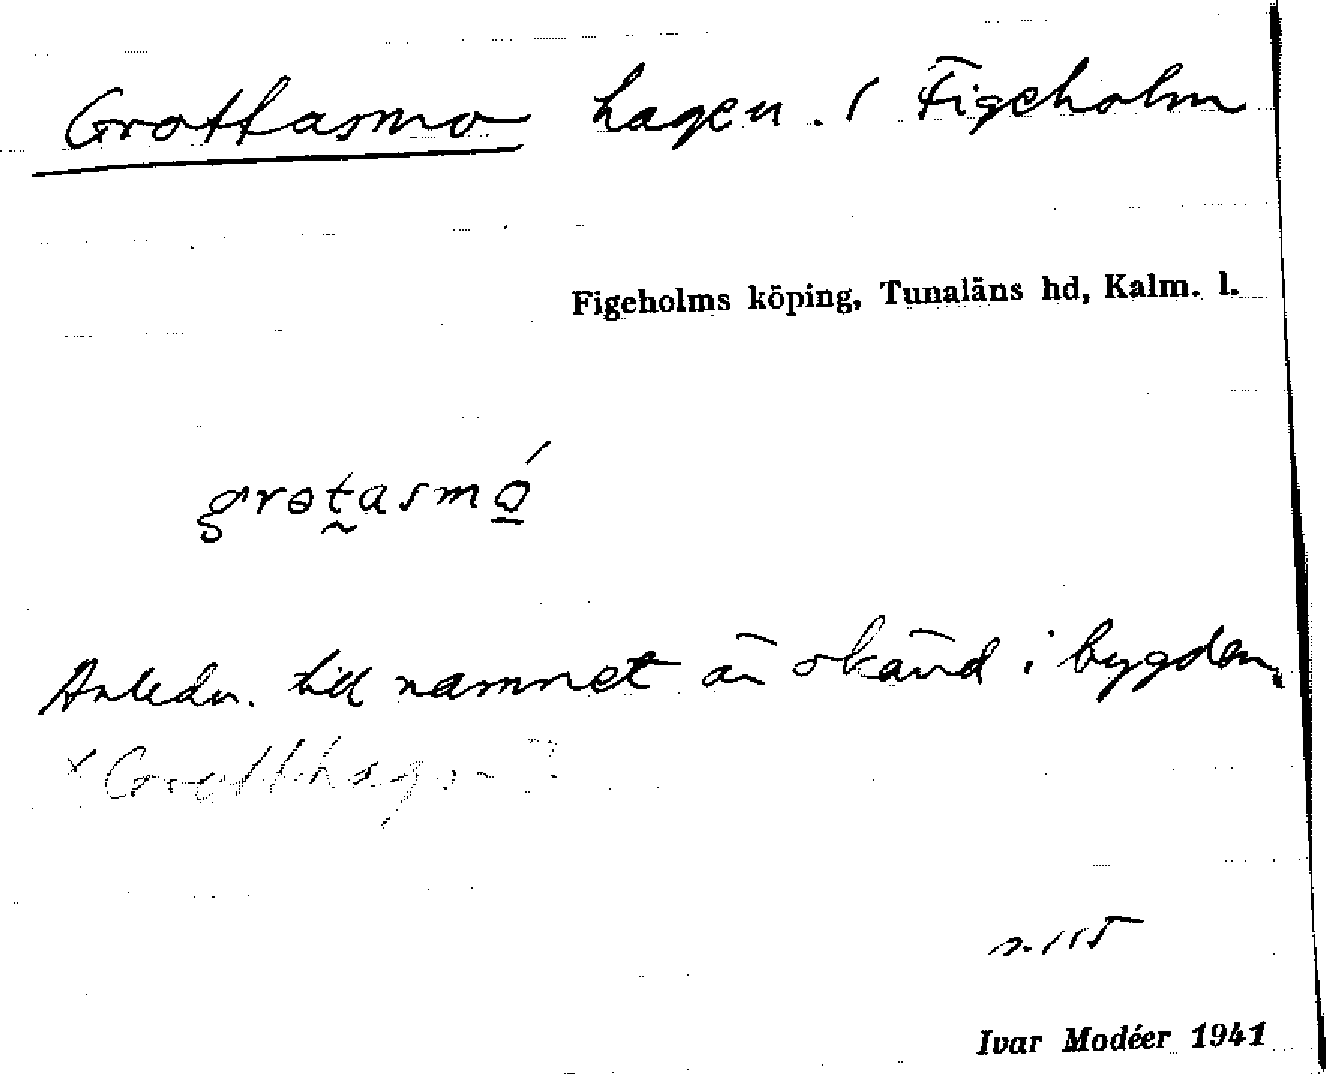 Grottasmo hagen. i Figeholm
Figeholms köping, Tunaläns hd, Kalm. l.
grɵtasmó̱
Anledn. till namnet är okänd i bygden.
s. 115
Ivar Modéer 1941